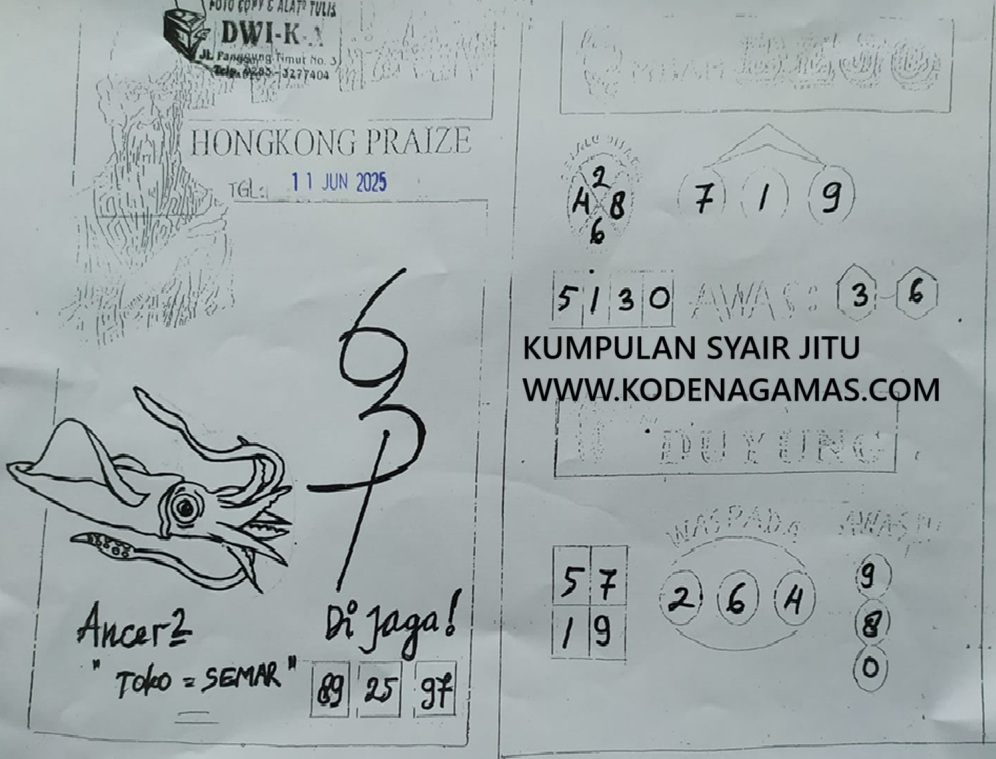 FOTO COPY & ALAT² TULIS
DWI-K
JL. Panggung Timur No. 3
Telp. 0285 - 3277404
HONGKONG PRAIZE
TGL: 11 JUN 2025
6
3
7
Ancer2
"Toko = SEMAR"
Di Jaga!
89 25 97
2
4 8
6
7 1 9
5 1 3 0 AWAS : 3 - 6
KUMPULAN SYAIR JITU
WWW.KODENAGAMAS.COM
DUYUNG
WASPADA
5 7
1 9
2 6 4
9
8
0